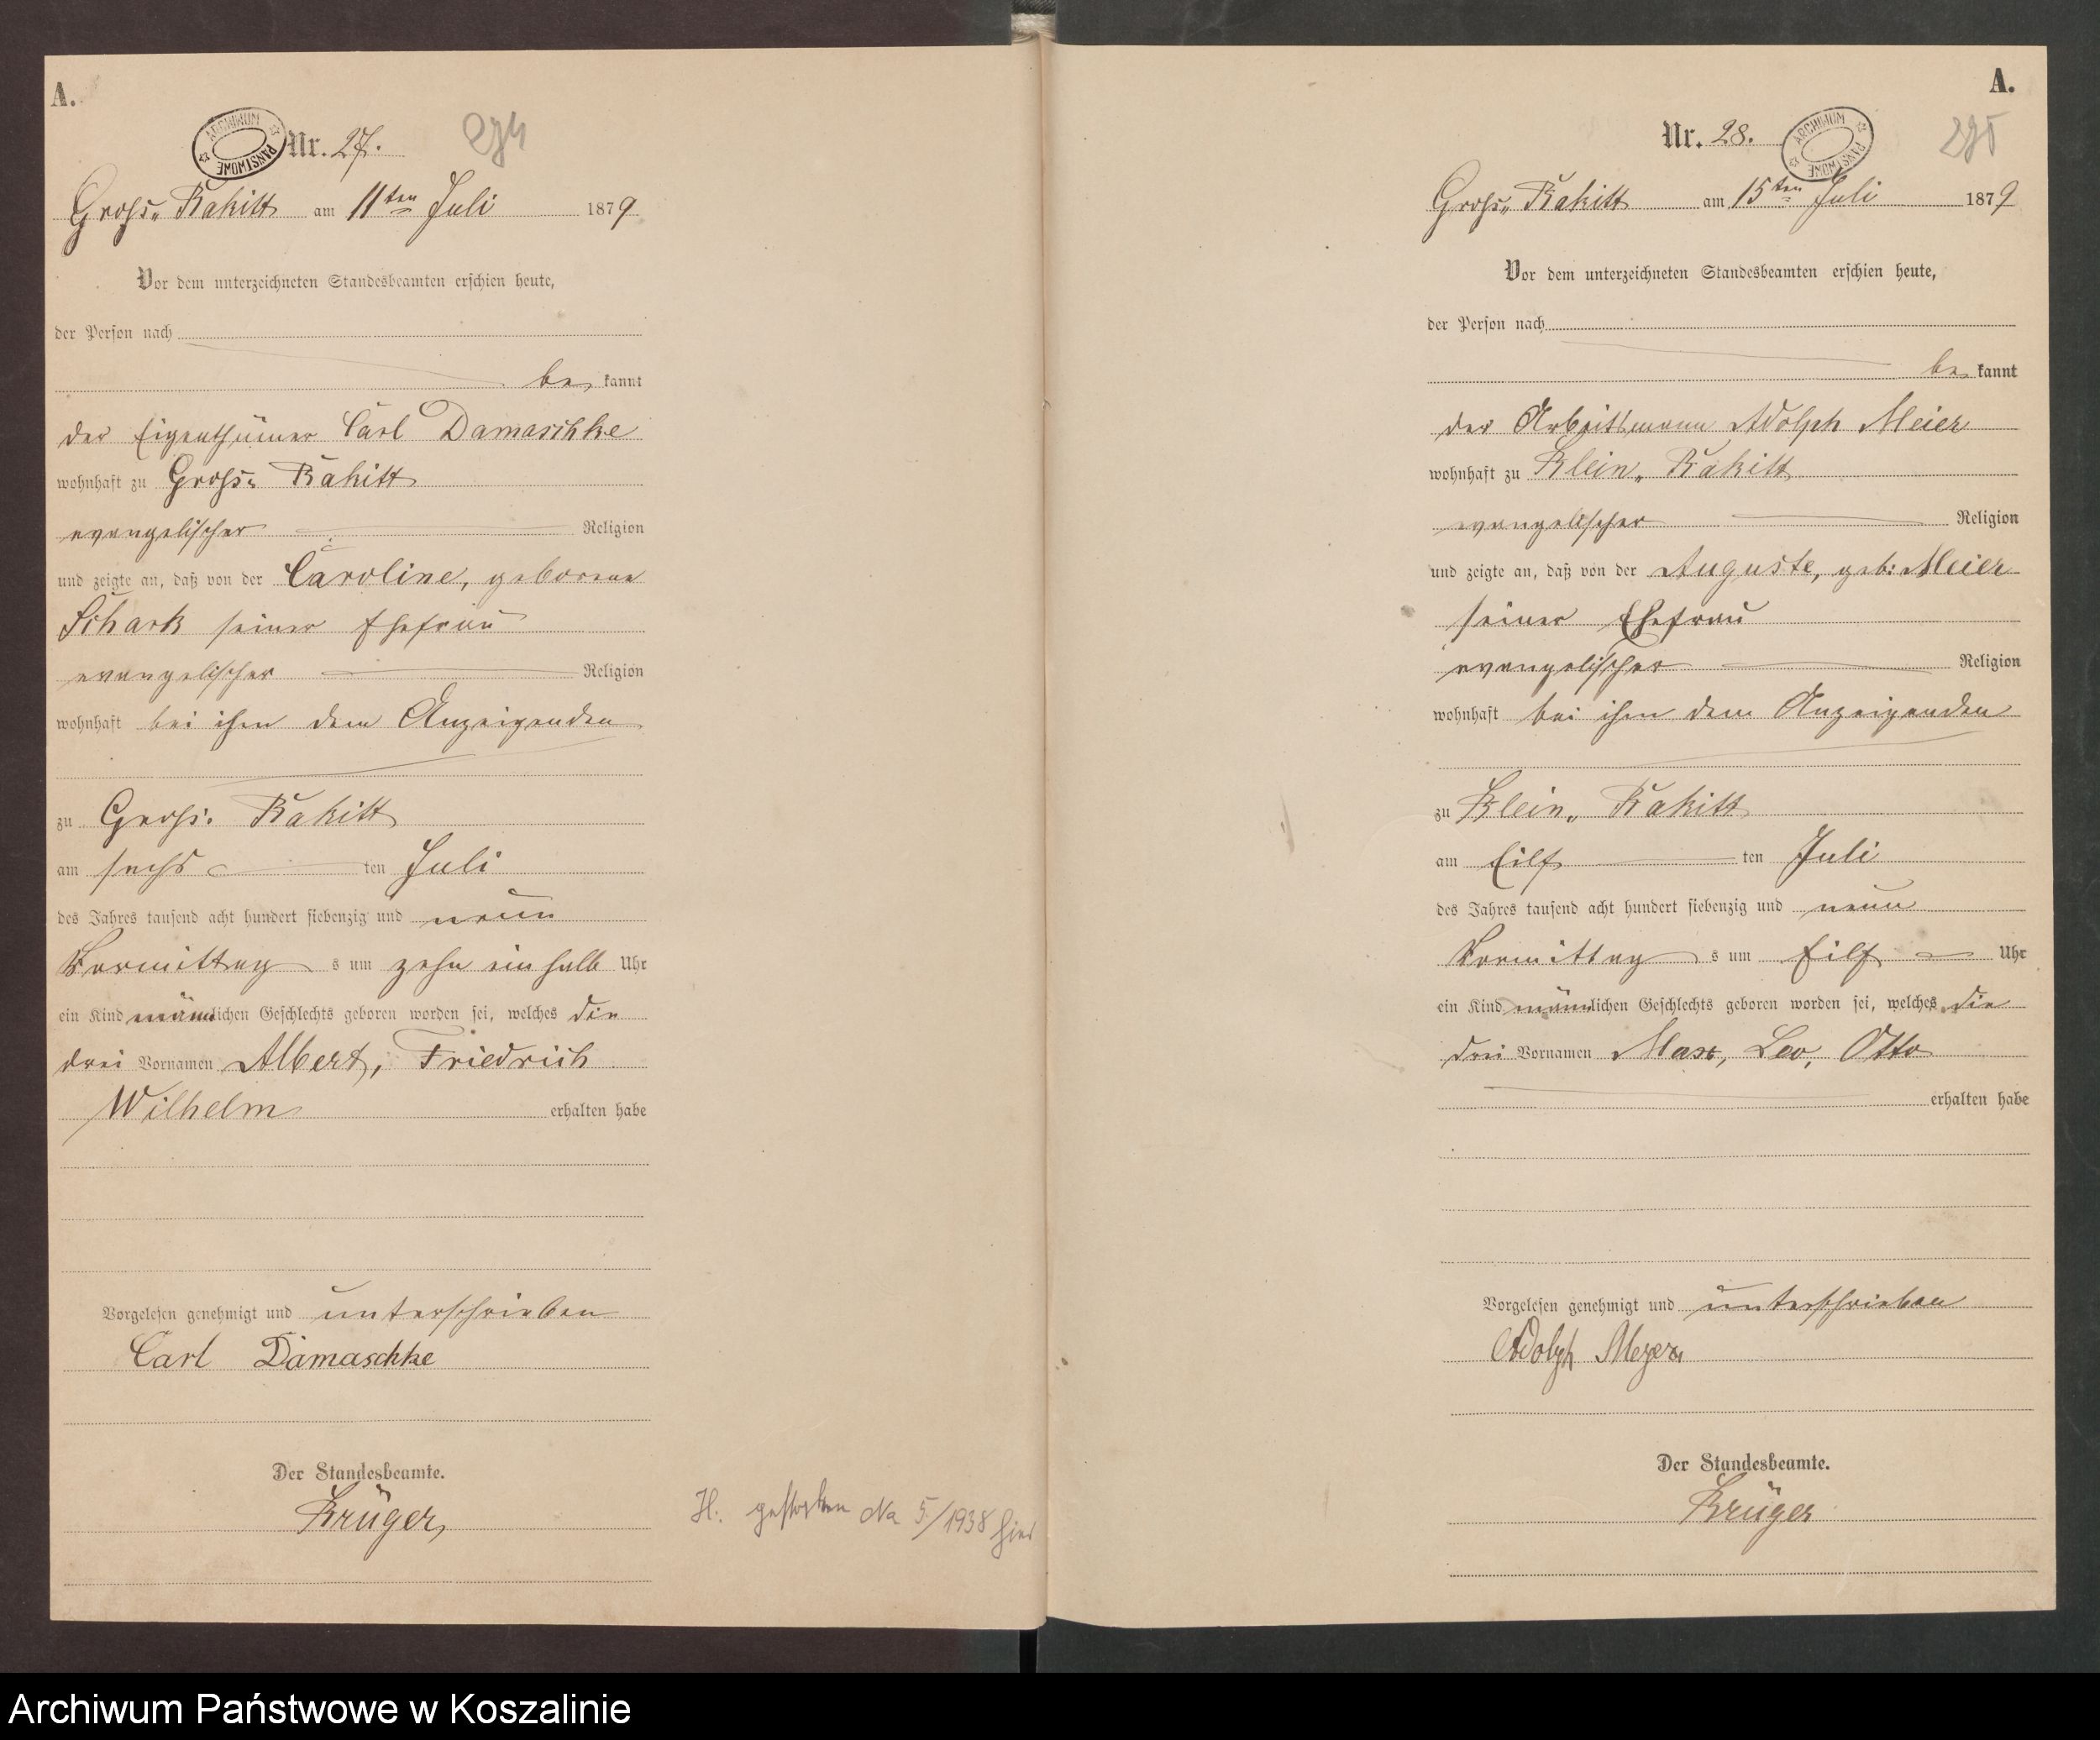 A.
ARCHIWUM PAŃSTWOWE
Nr. 27.
Groß„ Rakitt am 11ten Juli 1879
Vor dem unterzeichneten Standesbeamten erschien heute,
der Person nach
be kannt
der Eigenthümer Carl Damaschke
wohnhaft zu Groß- Rakitt
evangelischer Religion
und zeigte an, daß von der Caroline, geborene
Schark seiner Ehefrau
evangelischer Religion
wohnhaft bei ihm dem Anzeigenden
zu Groß- Rakitt
am sechs ten Juli
des Jahres tausend acht hundert siebenzig und neun
Vormittag s um zehn ein halb Uhr
ein Kind männlichen Geschlechts geboren worden sei, welches die
drei Vornamen Albert, Friedrich
Wilhelm erhalten habe
Vorgelesen genehmigt und unterschrieben
Carl Damaschke
Der Standesbeamte.
Krüger,
H. gestorben No 5/1938 hier
A.
Nr. 28.
ARCHIWUM PAŃSTWOWE
275
Groß„ Rakitt am 15ten Juli 1879
Vor dem unterzeichneten Standesbeamten erschien heute,
der Person nach
be kannt
der Arbeitsmann Adolph Meier
wohnhaft zu Klein„ Rakitt
evangelischer Religion
und zeigte an, daß von der Auguste, geb: Meier
seiner Ehefrau
evangelischer Religion
wohnhaft bei ihm dem Anzeigenden
zu Klein„ Rakitt
am Eilf ten Juli
des Jahres tausend acht hundert siebenzig und neun
Vormittag s um Eilf Uhr
ein Kind männlichen Geschlechts geboren worden sei, welches die
drei Vornamen Max, Leo, Otto
erhalten habe
Vorgelesen genehmigt und unterschrieben
Adolph Meyer
Der Standesbeamte.
Krüger
Archiwum Państwowe w Koszalinie